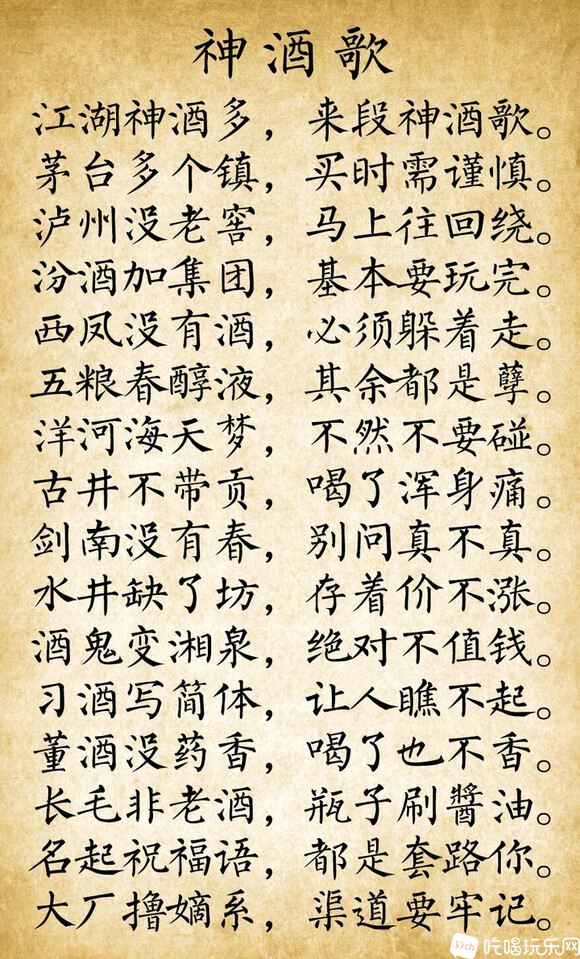 神酒歌
江湖神酒多，来段神酒歌。
茅台多个镇，买时需谨慎。
泸州没老窖，马上往回绕。
汾酒加集团，基本要玩完。
西凤没有酒，必须躲着走。
五粮春醇液，其余都是孽。
洋河海天梦，不然不要碰。
古井不带贡，喝了浑身痛。
剑南没有春，别问真不真。
水井缺了坊，存着价不涨。
酒鬼变湘泉，绝对不值钱。
习酒写简体，让人瞧不起。
董酒没药香，喝了也不香。
长毛非老酒，瓶子刷醬油。
名起祝福语，都是套路你。
大厂撸嫡系，渠道要牢记。
吃喝玩乐网